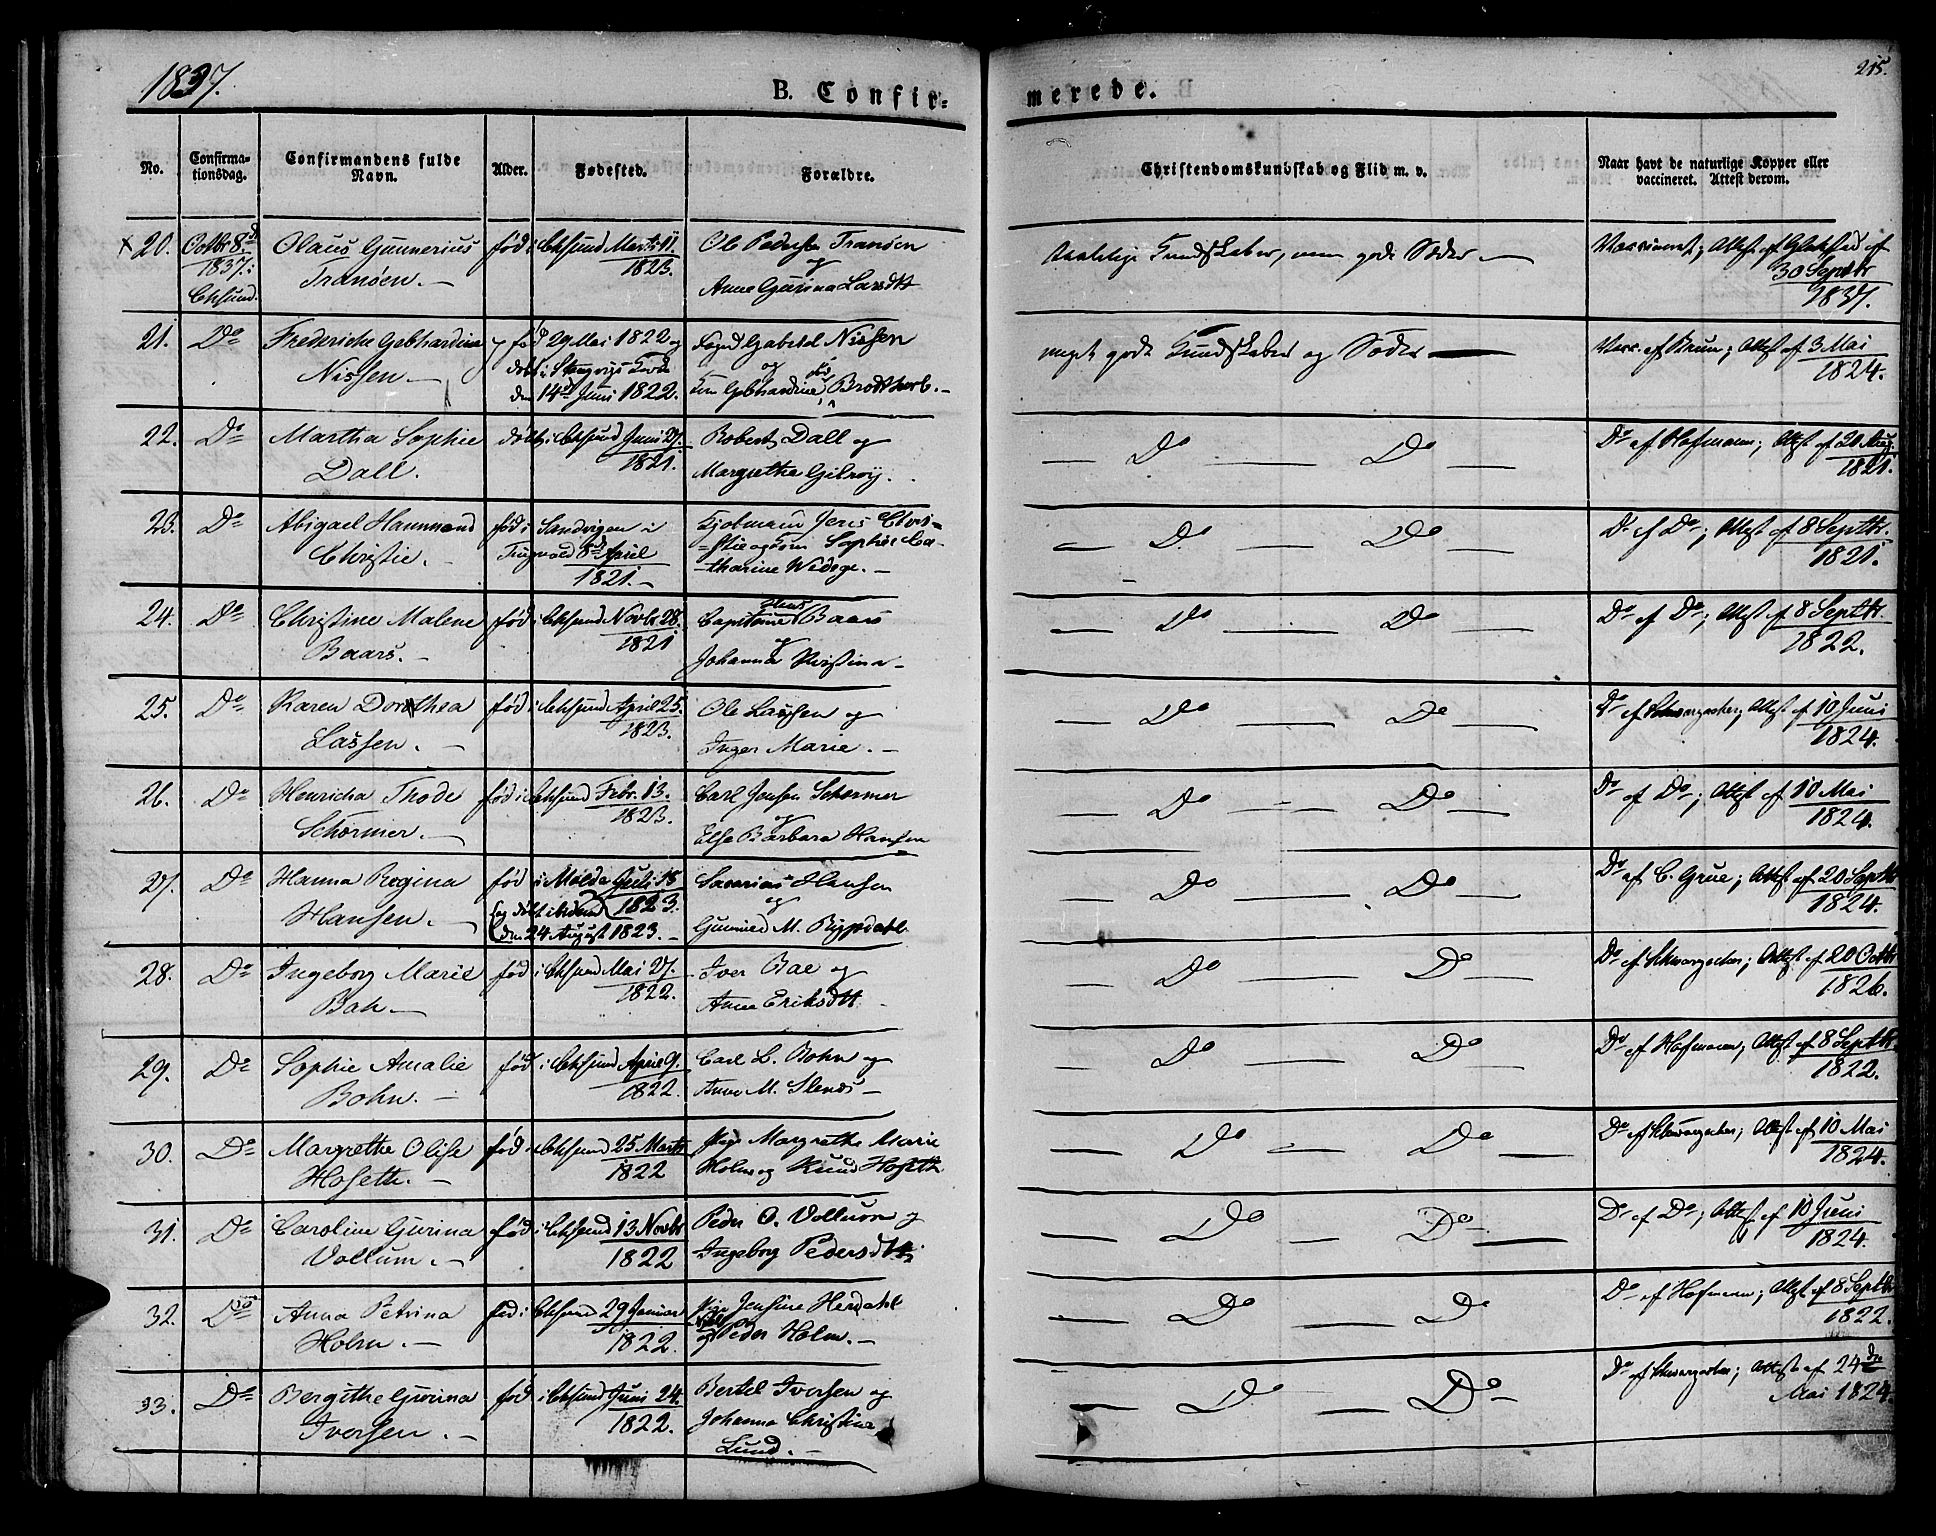 1837.
B. Confir-
merede.
215.
No.
Confirma-
tionsdag.
Confirmandens fulde
Navn.
Alder.
Fødested.
Forældre.
Christendomskundskab og Flid m. v.
Naar havt de naturlige Kopper eller
vaccineret. Attest derom.
20. Octbr 8d Olaus Gunnerius fød i Chsund Marts 11. Ole Pedersen Tranöen
1837. Tranöen. 1823. og
Chsund. Anne Gurina Larsdtt
Kundskaber, men gode Sæder
Vaccineret; Attest af
30 Septbr
1837.
21. Do Frederiche Gebhardina fød 29 Mai 1822 og Gabriel Nissen
Nissen. døbt i og
den 14d Juni 1822. Gebhardine, Brodtkorb.
meget gode Kundskaber og Sæder
Vacc. af Bruun; Attest af 3 Mai
1824.
22. Do Martha Sophie døbt i Chsund Juni 27. Robert Dall og
Dall. 1821. Margrethe Gilroy.
Do Do
Do af Hofmann; Attest af 20 Aug.
1821.
23. Do Abigael Hammond fød i Sandvigen i Kjøbmand Jens Chri-
Christie. 8d April stie og Sophie Ca-
1821. tharine Wedege.
Do Do
Do af Do; Attest af 8 Septbr.
1821.
24. Do Christine Malene fød i Chsund Novbr. 28. Capitaine Baars
Baars. 1821 og
Johanna Kristina
Do Do
Do af Do; Attest af 8 Septbr.
1822.
25. Do Karen Dorothea fød i Chsund April 25. Ole Lassen og
Lassen. 1823. Inger Marie.
Do Do
Do af; Attest af 10 Juni
1824.
26. Do Henricha Thode fød i Chsund Febr. 13. Carl Jensen Schörmer
Schörmer. 1823. og
Else Barbara Hansen
Do Do
Do af Do; Attest af 10 Mai
1824.
27. Do Hanna Regina fød i Molde Juli 18 Hansen
Hansen. og døbt ibidem 1823. og
den 24 August 1823. Gunnild M.
Do Do
Do af C. Grue; Attest af 20 Septbr
1824.
28. Do Ingeborg Marie fød i Chsund Mai 27. Iver Bae og
Bah. 1822. Anne Eriksdtt
Do Do
Do af; Attest af 20 Octbr
1826.
29. Do Sophie Amalie fød i Chsund April 9. Carl L. Bohn og
Bohn. 1822. Anne M.
Do Do
Do af Hofmann; Attest af 8 Septbr.
1822.
30. Do Margrethe Olise fød i Chsund 25 Marts Pige Margrethe Marie
Hoseth. 1822 Holm og Knud Hoseth
Do Do
Do af; Attest af 10 Mai
1824.
31. Do Caroline Gjurina fød i Chsund 13 Novbr Peder O. Vollum og
Vollum. 1822 Ingeborg Pedersdtt
Do Do
Do af Do; Attest af 10 Juni
1824.
32. Do Anna Petrina fød i Chsund 29 Januar Pige Jensine Herdahl
Holm. 1822. og Peder Holm.
Do Do
Do af Hofmann; Attest af 8 Septbr
1822.
33. Do Bergithe Gurina fød i Chsund Juni 24. Bertel Iversen og
Iversen. 1822. Johanna Christine
Lund.
Do Do
Do af; Attest af 24de
Mai 1824.